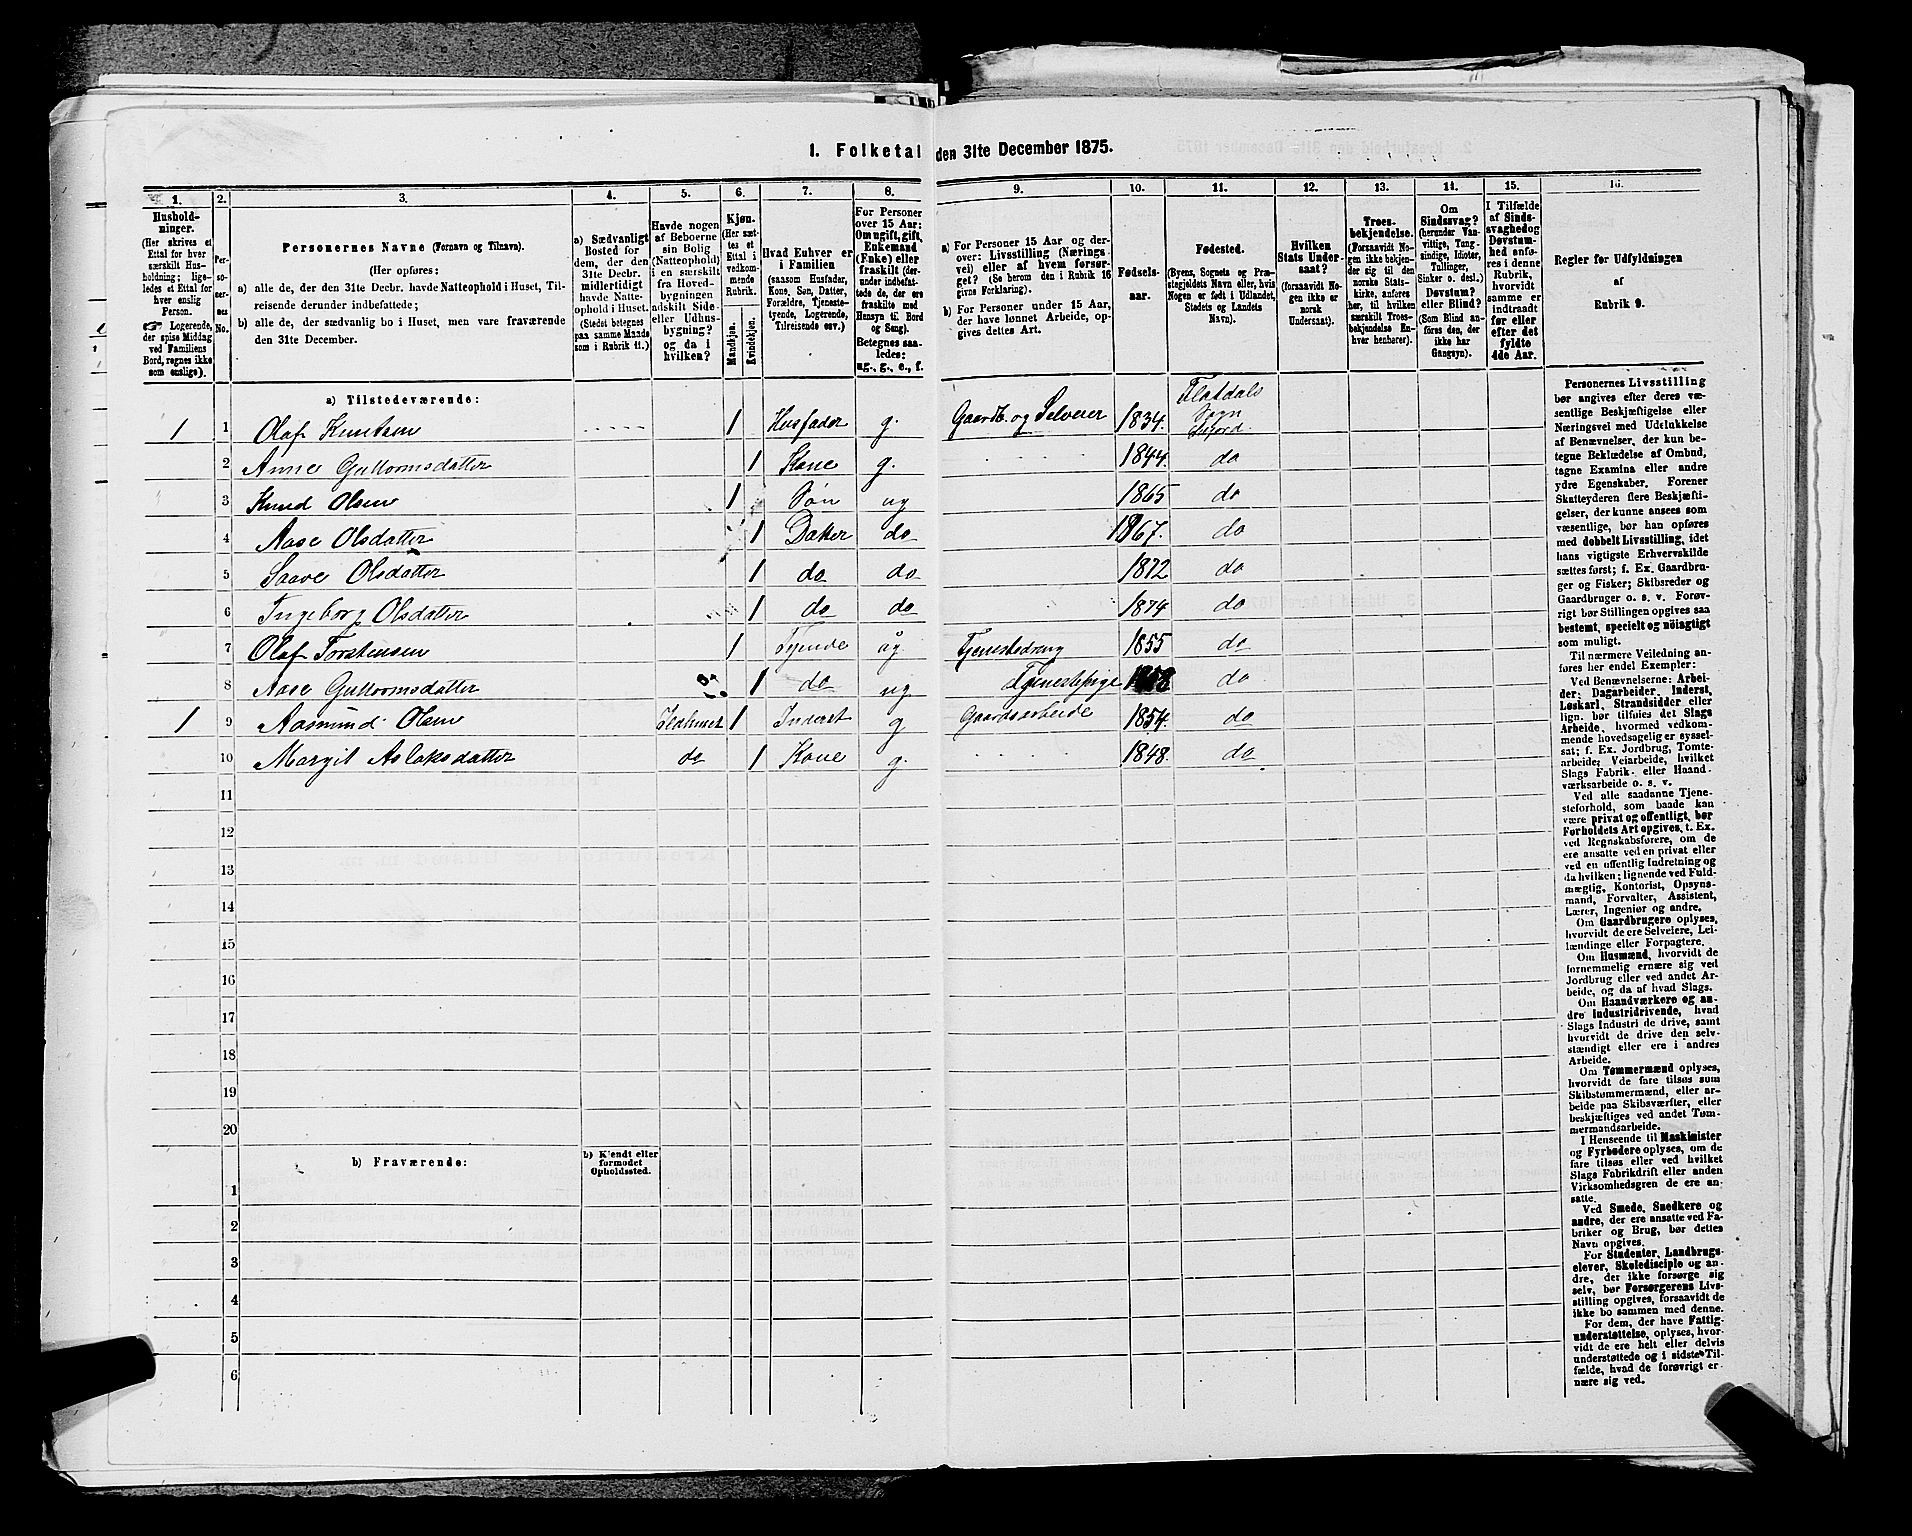 1. Folketal den 31te December 1875.
1. 2. 3. 4. 5. 6. 7. 8. 9. 10. 11. 12. 13. 14. 15. 16.
Hushold-
ninger.
(Her skrives et
Ettal for hver
særskilt Hus-
holdning; lige-
ledes et Ettal for
hver enslig
Person.
☞ Logerende,
der spise Middag
ved Familiens
Bord, regnes ikke
som enslige).
Per-
so-
ner-
nes
No.
Personernes Navne (Fornavn og Tilnavn).
(Her opføres:
a) alle de, der den 31te Decbr. havde Natteophold i Huset, Til-
reisende derunder indbefattede;
b) alle de, der sædvanlig bo i Huset, men vare fraværende
den 31te December.
a) Sædvanligt
Bosted for
dem, der den
31te Decbr.
midlertidigt
havde Natte-
ophold i Huset.
(Stedet betegnes
paa samme Maade
som i Rubrik 11.)
Havde nogen
af Beboerne
sin Bolig
(Natteophold)
i en særskilt
fra Hoved-
bygningen
adskilt Side-
eller Udhus-
bygning?
og da i
hvilken?
Kjøn.
(Her sæt-
tes et
Ettal i
vedkom-
mende
Rubrik.
Mandkjøn.
Kvindekjøn.
Hvad Enhver er
i Familien
(saasom Husfader,
Kone, Søn, Datter,
Forældre, Tjeneste-
tyende, Logerende,
Tilreisende osv.)
For Personer
over 15 Aar:
Om ugift, gift,
Enkemand
(Enke) eller
fraskilt (der-
under indbefat-
tede de, der ere
fraskilte med
Hensyn til Bord
og Seng).
Betegnes saa-
ledes:
ug., g., e., f.
a) For Personer 15 Aar og der-
over: Livsstilling (Nærings-
vei) eller af hvem forsør-
get? (Se herom den i Rubrik 16
givne Forklaring).
b) For Personer under 15 Aar,
der have lønnet Arbeide, op-
gives dettes Art.
Fødsels-
aar.
Fødested.
(Byens, Sognets og Præ-
stegjeldets Navn eller, hvis
Nogen er født i Udlandet,
Stedets og Landets
Navn).
Hvilken
Stats Under-
saat?
(forsaavidt No-
gen ikke er
norsk
Undersaat).
Troes-
bekjendelse.
(Forsaavidt No-
gen ikke bekjen-
der sig til den
norske Stats-
kirke, anføres
her, til hvilken
særskilt Troes-
bekjendelse En-
hver henhører).
Om
Sindssvag?
(herunder Van-
vittige, Tung-
sindige, Idioter,
Tullinger,
Sinker o. desl.).
Døvstum?
eller Blind?
(Som Blind an-
føres den, der
ikke har
Gangsyn).
I Tilfælde
af Sinds-
svaghed og
Døvstum-
hed anfø-
res i denne
Rubrik,
hvorvidt
samme er
indtraadt
før eller
efter det
fyldte
4de Aar.
Regler for Udfyldningen
af
Rubrik 9.
a) Tilstedeværende:
1 1 Olaf Knutsen 1 Husfader g. Gaardb. og Selveier 1834. Flatdals Sogn
2 Anne Gullormsdatter 1 Kone g. 1844. do
3 Knud Olsen 1 Søn ug 1865 do
4 Aase Olsdatter 1 Datter do 1867. do
5 Saave Olsdatter 1 do do 1872 do
6 Ingeborg Olsdatter 1 do do 1874 do
7 Olaf Torstensen 1 Tyende ug. Tjenestedreng 1855 do
8 Aase Gullormsdatter 1 do ug Tjenestepige do
1 9 Aasmund Olsen Ildhuset 1 Inderst g Gaardsarbeide 1854. do
10 Margit Aslaksdatter do 1 Kone g. 1848. do
11
12
13
14
15
16
17
18
19
20
b) Fraværende:
b) Kjendt eller
formodet
Opholdssted.
1
2
3
4
5
6
Personernes Livsstilling
bør angives efter deres væ-
sentlige Beskjæftigelse eller
Næringsvei med Udelukkelse
af Benævnelser, der kun be-
tegne Beklædelse af Ombud,
tagne Examina eller andre
ydre Egenskaber. Forener
Skatteyderen flere Beskjæfti-
gelser, der kunne ansees som
væsentlige, bør han opføres
med dobbelt Livsstilling, idet
hans vigtigste Erhvervskilde
sættes først; f. Ex. Gaardbru-
ger og Fisker; Skibsreder og
Gaardbruger o. s. v. Forøv-
rigt bør Stillingen opgives saa
bestemt, specielt og nöiagtigt
som muligt.
Til nærmere Veiledning an-
føres her endel Exempler:
Ved Benævnelserne: Arbei-
der; Dagarbeider, Inderst,
Løskarl, Strandsidder eller
lign. bør tilføies det Slags
Arbeide, hvormed vedkom-
mende hovedsagelig er syssel-
sat; f. Ex. Jordbrug, Tomte-
arbeide; Veiarbeide, hvilket
Slags Fabrik- eller Haand-
værksarbeide o. s. v.
Ved alle saadanne Tjene-
steforhold, som baade kan
være privat og offentlig, bør
Forholdets Art opgives, t. Ex.
ved Regnskabsførere, om de
ere ansatte ved en privat eller
ved en offentlig Indretning og
da hvilken; lignende ved Fuld-
mægtig, Kontorist, Opsyns-
mand, Forvalter, Assistent,
Lærer, Ingeniør og andre.
Om Gaardbrugere oplyses,
hvorvidt de ere Selveiere, Lei-
lændinge eller Forpagtere.
Om Husmænd, hvorvidt de
fornemmelig ernære sig ved
Jordbrug eller ved andet Ar-
beide, og da af hvad Slags.
Om Haandværkere og an-
dre Industridrivende, hvad
Slags Industri de drive, samt
hvorvidt de drive den selv-
stændigt eller ere i andres
Arbeide.
Om Tømmermænd oplyses,
hvorvidt de fare tilsøs som
Skibstømmermænd, eller ar-
beide paa Skibsværfter, eller
beskjæftiges ved andet Tøm-
mermandsarbeide.
I Henseende til Maskinister
og Fyrbødere oplyses, om de
fare tilsøs eller ved hvilket
Slags Fabrikdrift eller anden
Virksomhedsgren de ere an-
satte.
Ved Smede, Snedkere og
andre, der ere ansatte ved Fa-
briker og Brug, bør dettes
Navn opgives.
For Studenter, Landbrugs-
elever, Skoledisciple og an-
dre, der ikke forsørge sig
selv, bør Forsørgerens Livs-
stilling opgives, forsaavidt de
ikke bo sammen med denne.
For dem, der have Fattig-
understøttelse, oplyses, hvor-
vidt de ere helt eller delvis
understøttede og i sidste Til-
fælde, hvad de forøvrigt er-
nære sig ved.